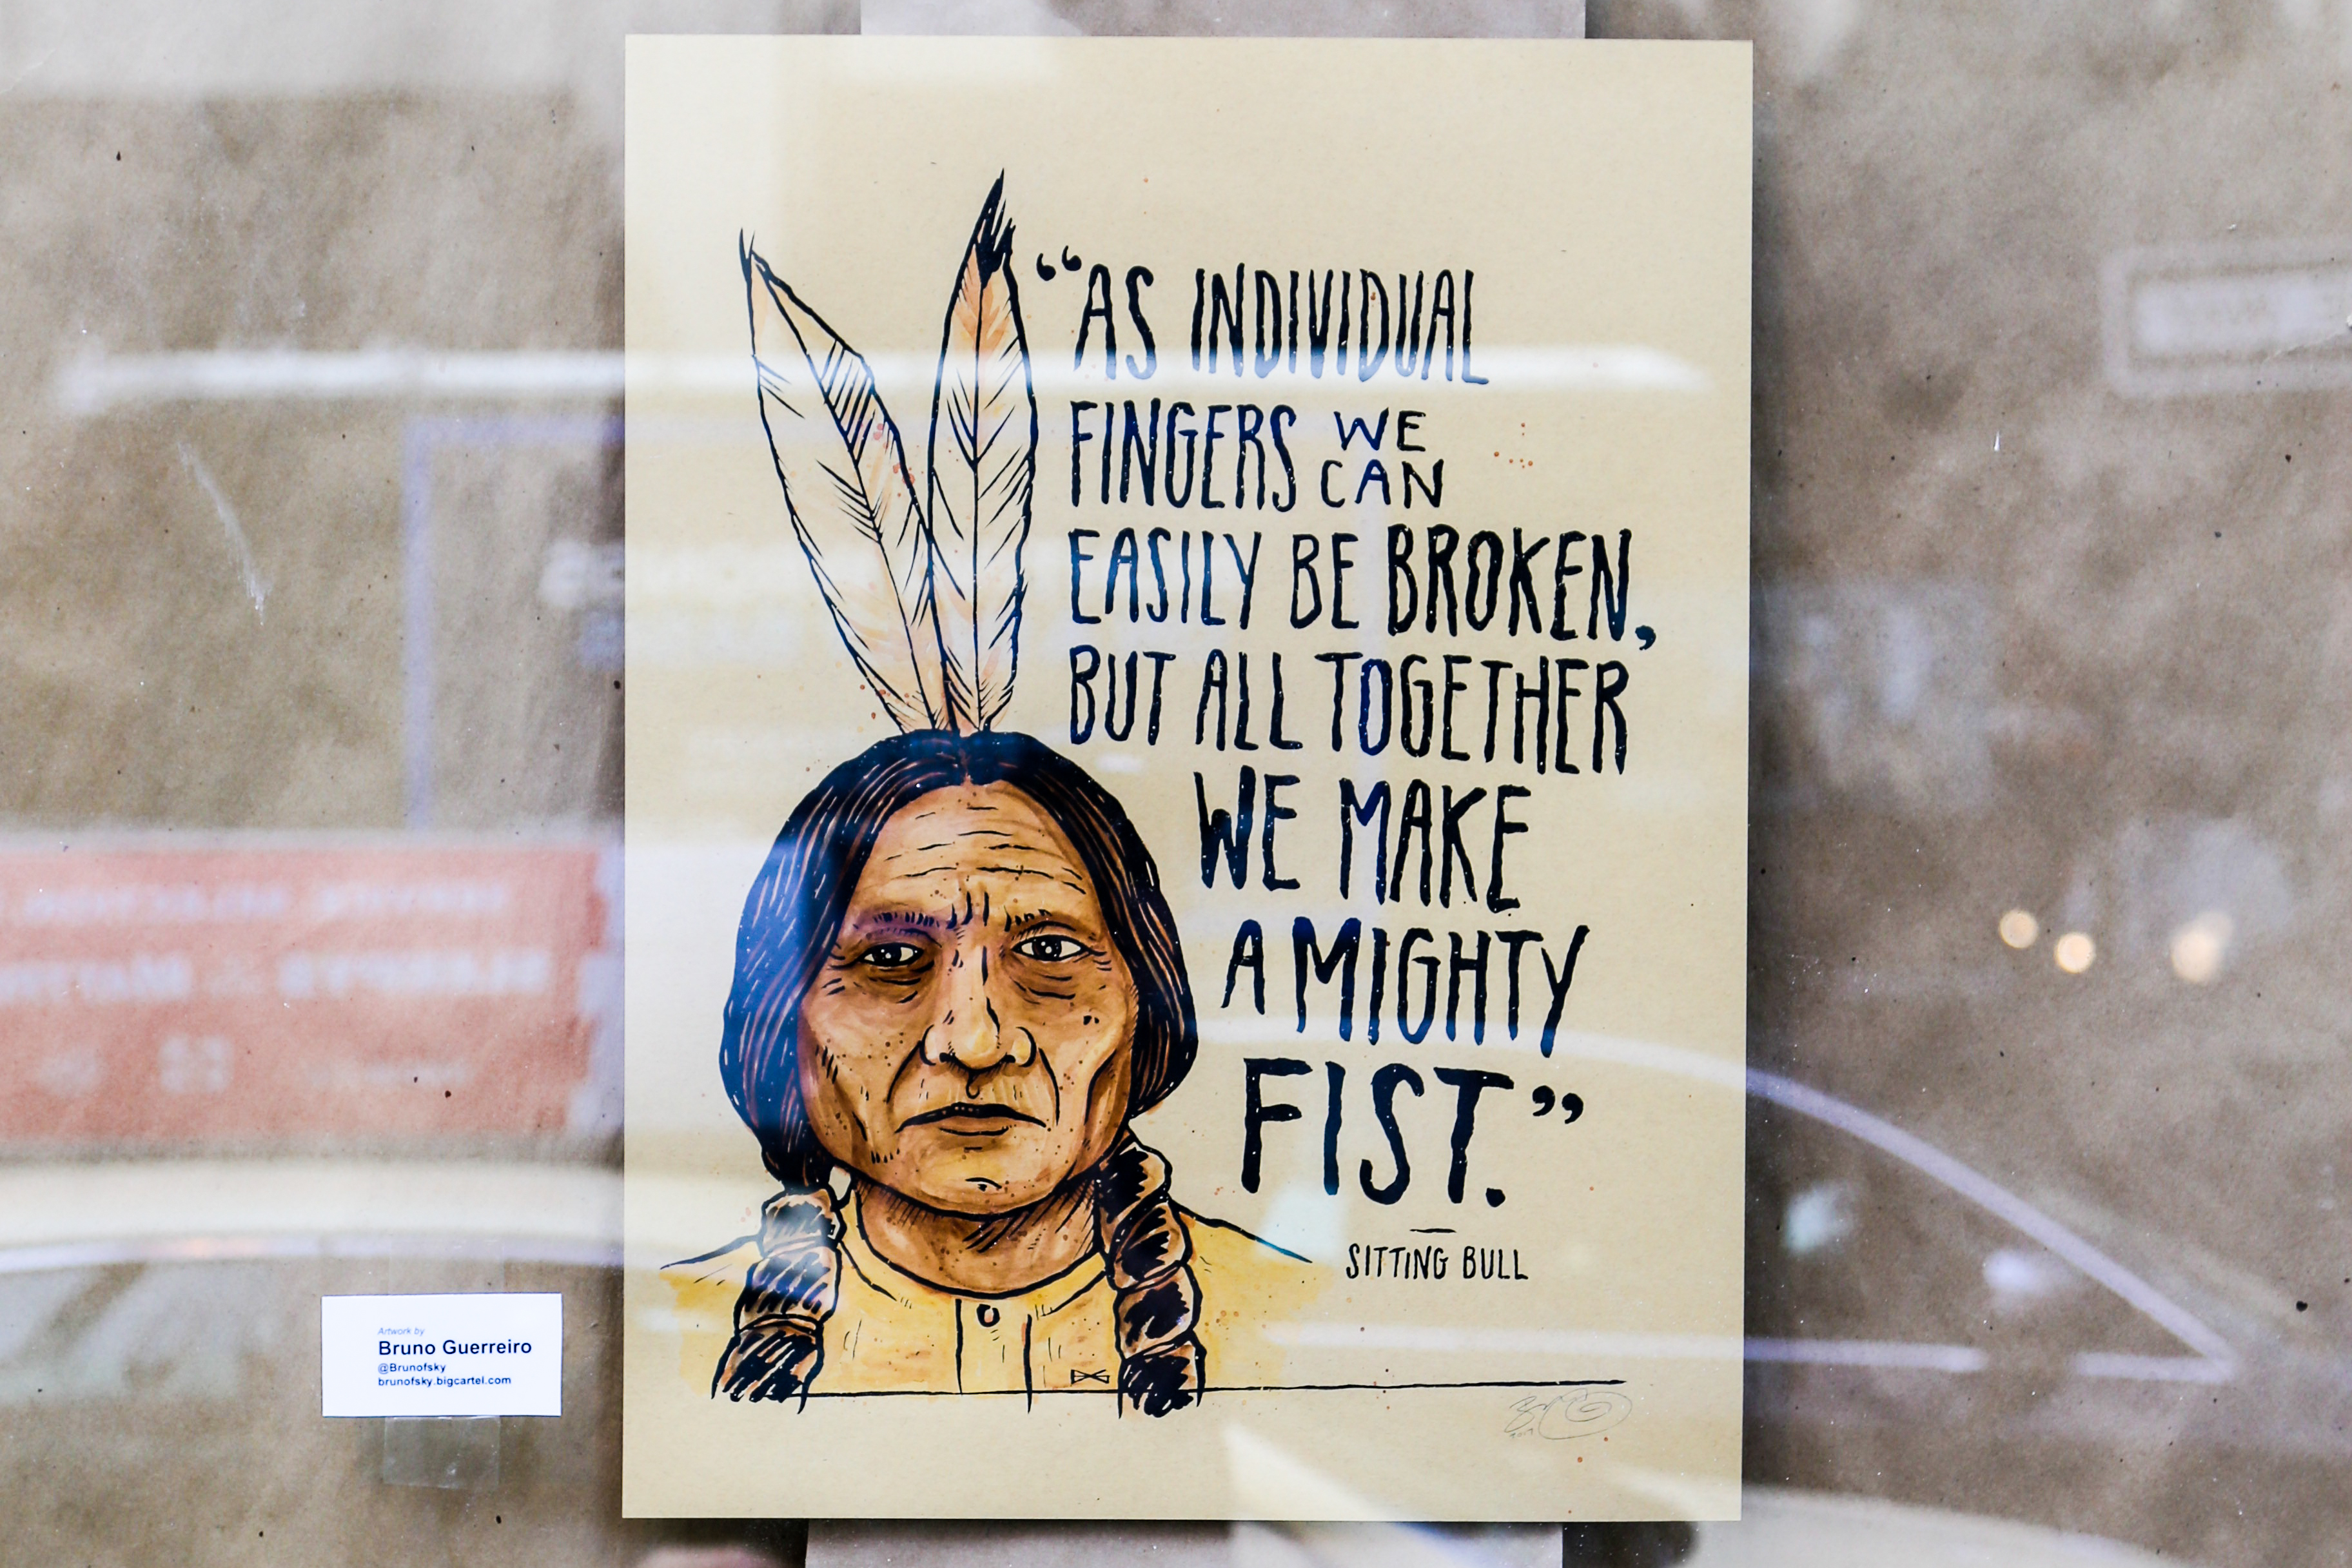 “AS INDIVIDUAL
FINGERS WE
CAN
EASILY BE BROKEN,
BUT ALL TOGETHER
WE MAKE
A MIGHTY
FIST.”
—
SITTING BULL
Artwork by
Bruno Guerreiro
@Brunofsky
brunofsky.bigcartel.com